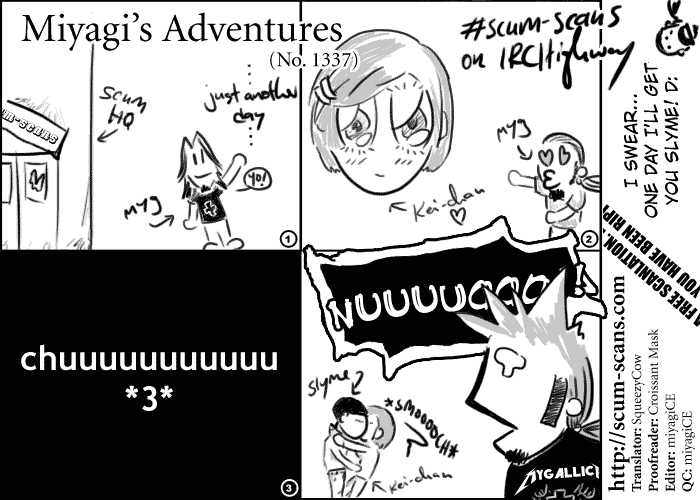 Miyagi's Adventures
(No. 1337)
scum
HQ
just another
day
YO!
myg
1
#scum-scans
on IRCHighway
myg
Kei-chan
2
chuuuuuuuuuuu
*3*
3
slyme
*SMOOOOCH*
Kei-chan
MYGALLICA
I SWEAR...
ONE DAY I'LL GET
YOU SLYME! D:
A FREE SCANLATION,
YOU HAVE BEEN
http://scum-scans.com
Translator: SqueezyCow
Proofreader: Croissant Mask
Editor: miyagiCE
QC: miyagiCE